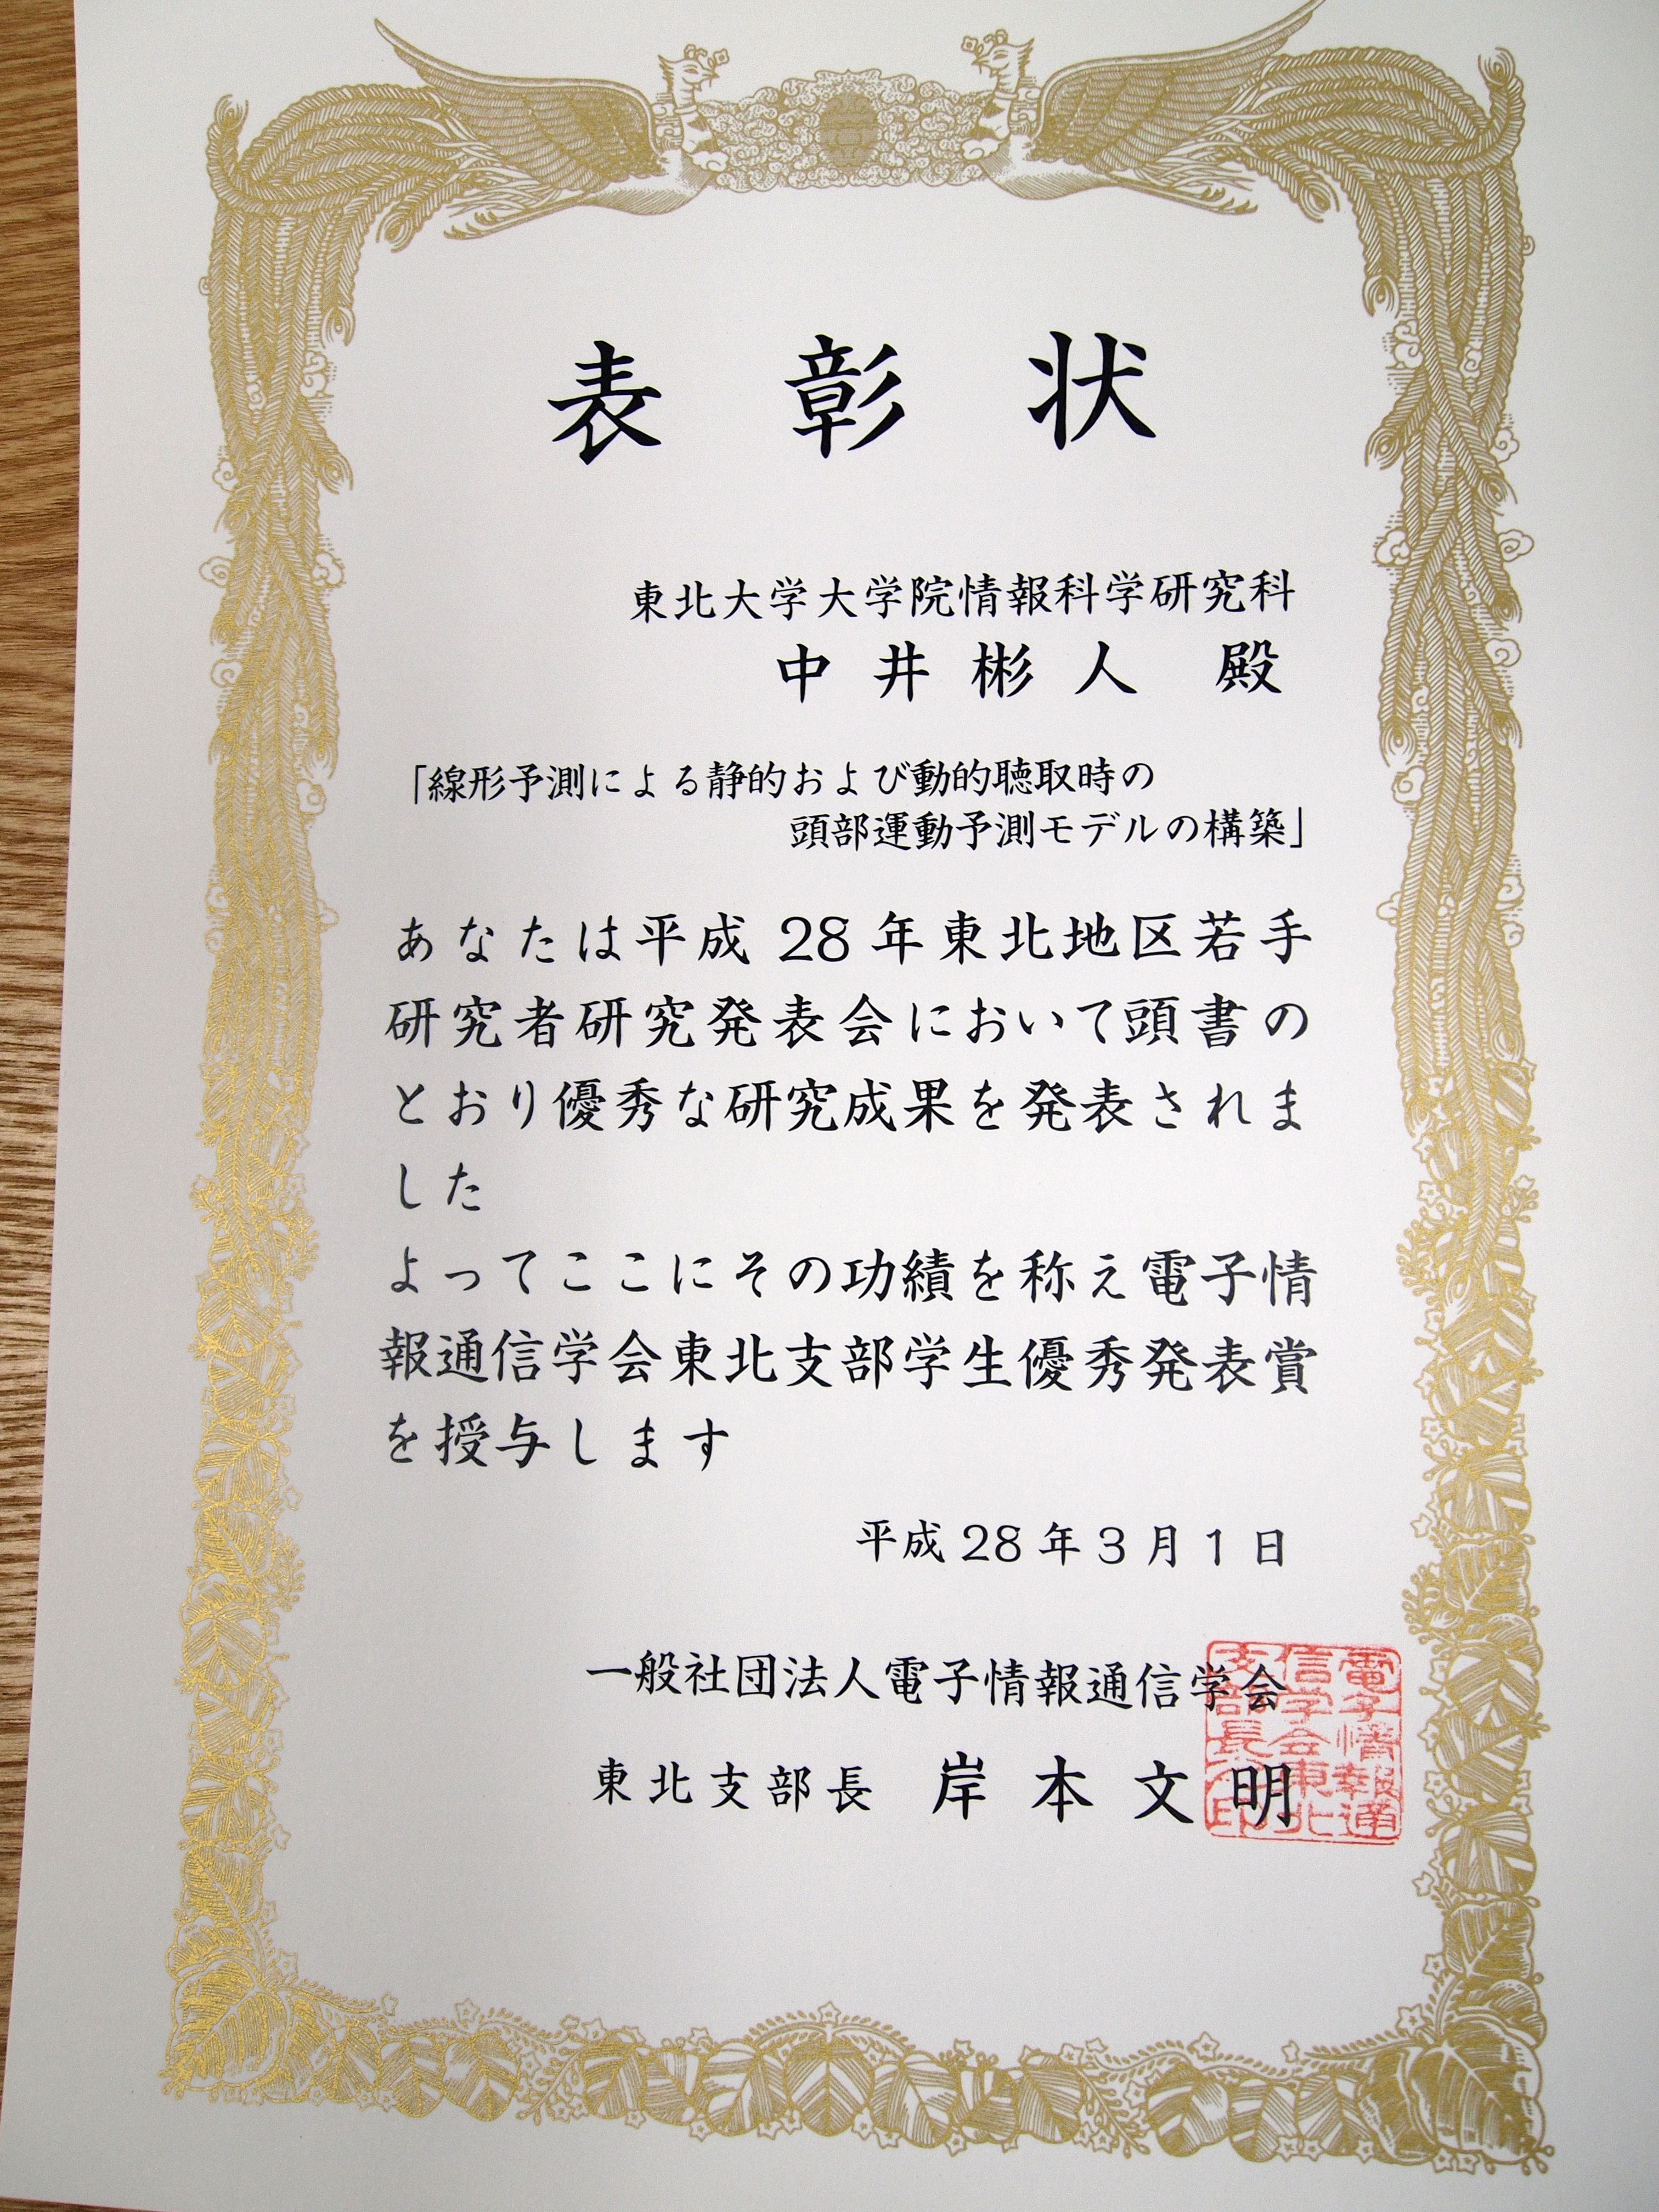 表彰状
東北大学大学院情報科学研究科
中井彬人 殿
「線形予測による静的および動的聴取時の
頭部運動予測モデルの構築」
あなたは平成28年東北地区若手
研究者研究発表会において頭書の
とおり優秀な研究成果を発表されま
した
よってここにその功績を称え電子情
報通信学会東北支部学生優秀発表賞
を授与します
平成28年3月1日
一般社団法人電子情報通信学会
東北支部長 岸本文明
電子情報通
信学会東北
支部長之印